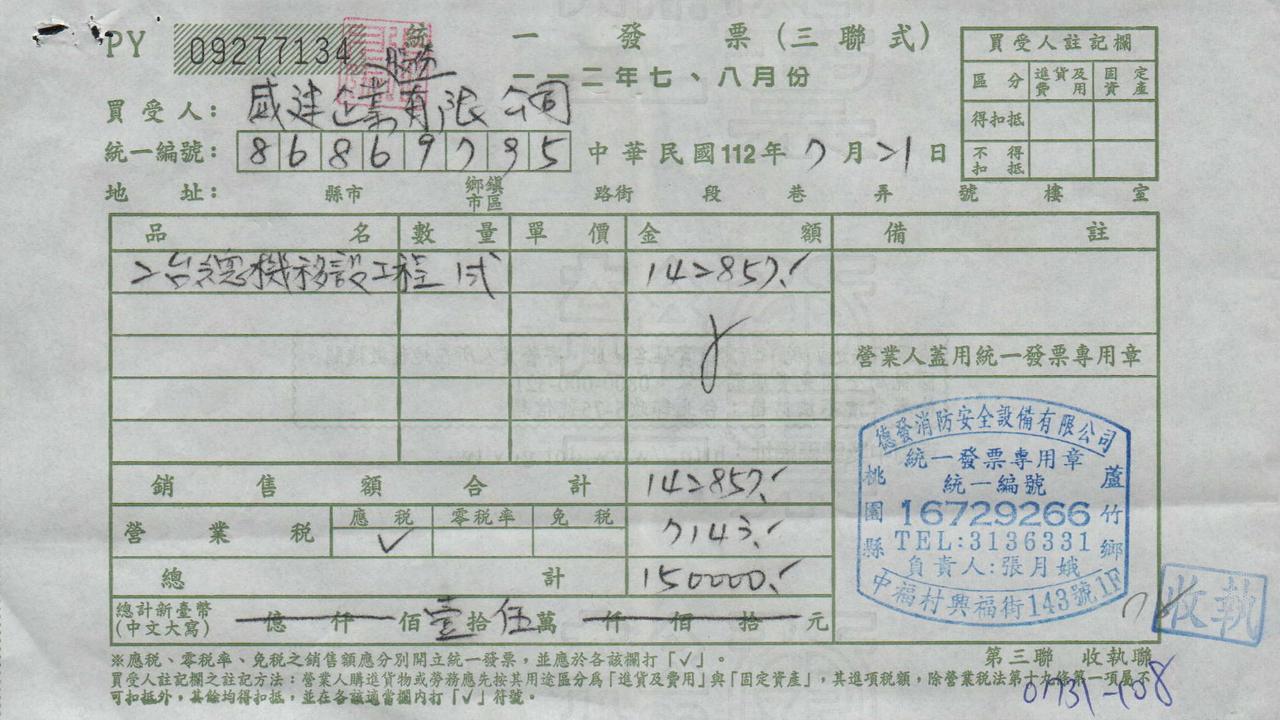 PY 09277134 統一發票(三聯式)
一一二年七、八月份
買受人: 威建企業股份有限公司
統一編號: 86869795 中華民國112年7月21日
地址: 縣市 鄉鎮市區 路街 段 巷 弄 號 樓 室
買受人註記欄
區分 進貨及費用 固定資產
得扣抵
不得扣抵
品名 數量 單價 金額 備註
2台 機移設工程 1式 142857.
營業人蓋用統一發票專用章
銷售額合計 142857.
營業稅 應稅 零稅率 免稅
✓ 7143.
總計 150000.
總計新臺幣(中文大寫) 億仟佰壹拾伍萬仟佰拾元
德發消防安全設備有限公司
統一發票專用章
統一編號
16729266
TEL:3136331
負責人:張月娥
桃園縣 蘆竹鄉
中福村興福街143號1F
收執
※應稅、零稅率、免稅之銷售額應分別開立統一發票,並應於各該欄打「✓」。
第三聯 收執聯
買受人註記欄之註記方法:營業人購進貨物或勞務應先按其用途區分為「進貨及費用」與「固定資產」,其進項稅額,除營業稅法第十九條第一項屬不
可扣抵外,其餘均得扣抵,並在各該適當欄內打「✓」符號。